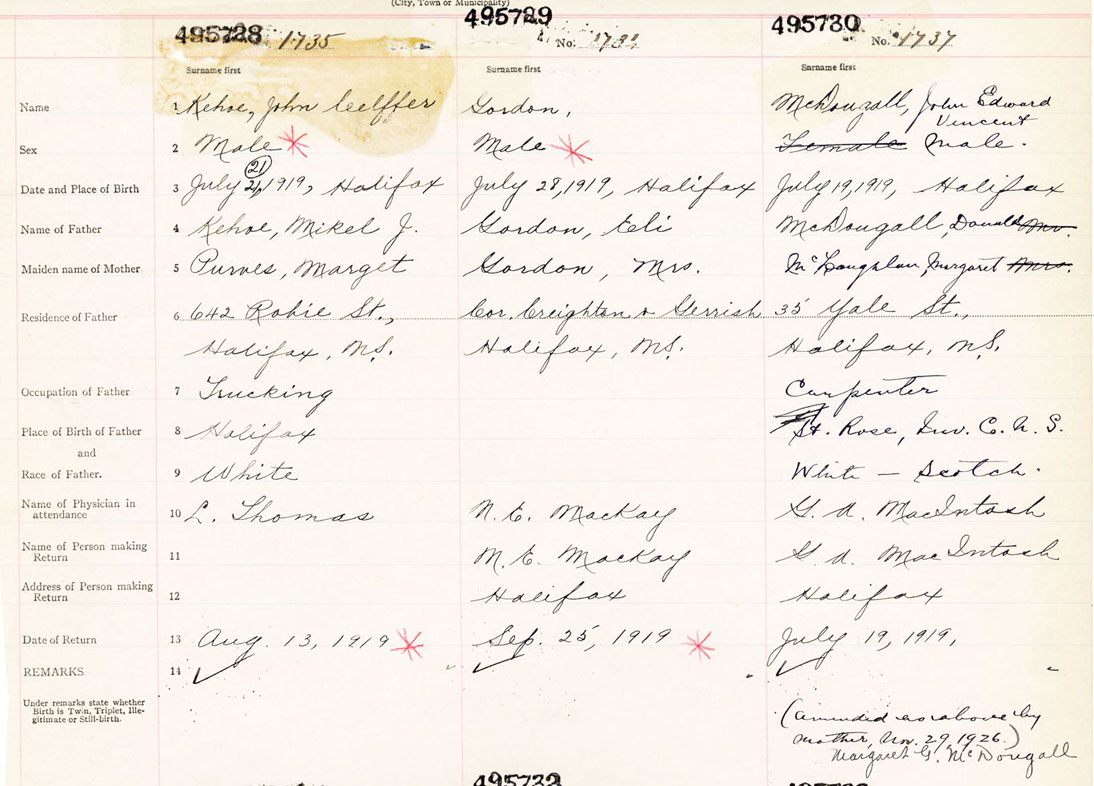 (City, Town or Municipality)
495728 1735 495729 No. 495730 No. 1737
Surname first Surname first Surname first
Name 1 Kehoe, John Gordon, McDougall, John Edward
Vincent
Sex 2 Male Male Female Male.
(21)
Date and Place of Birth 3 July 1919, Halifax July 28, 1919, Halifax July 19, 1919, Halifax
Name of Father 4 Kehoe, Mikel J. Gordon, Eli McDougall, Donald Mr.
Maiden name of Mother 5 Purves, Marget Gordon, Mrs. Margaret Mrs.
Residence of Father 6 642 Robie St., Cor. Creighton & Gerrish 35 Yale St.,
Halifax, N.S. Halifax, N.S. Halifax, N.S.
Occupation of Father 7 Trucking Carpenter
Place of Birth of Father 8 Halifax St. Rose, Inv. Co. N.S.
and
Race of Father. 9 White White — Scotch.
Name of Physician in
attendance 10 L. Thomas N. E. MacKay G. A. MacIntosh
Name of Person making
Return 11 N. E. MacKay G. A. MacIntosh
Address of Person making
Return 12 Halifax Halifax
Date of Return 13 Aug. 13, 1919 Sep. 25, 1919 July 19, 1919,
REMARKS 14
Under remarks state whether
Birth is Twin, Triplet, Ille-
gitimate or Still-birth.
(amended as above by
mother, Nov. 29, 1926.)
Margaret G. McDougall